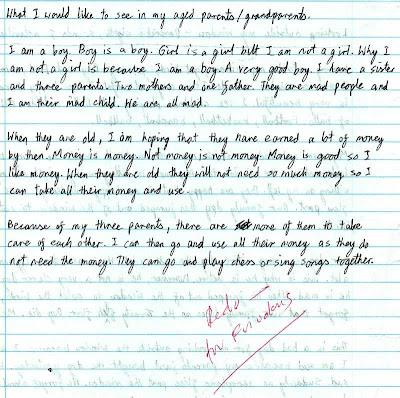 What I would like to see in my aged parents/grandparents.
I am a boy. Boy is a boy. Girl is a girl but I am not a girl. Why I
am not a girl is because I am a boy. A very good boy I have a sister
and three parents. Two mothers and one father. They are mad people and
I am their mad child. We are all mad.
When they are old, I am hoping that they have earned a lot of money
by then. Money is money. Not money is not money. Money is good so I
like money. When they are old they will not need so much money so I
can take all their money and use.
Because of my three parents, there are more of them to take
care of each other. I can then go and use all their money as they do
not need the money. They can go and play chess or sing songs together.
Redo